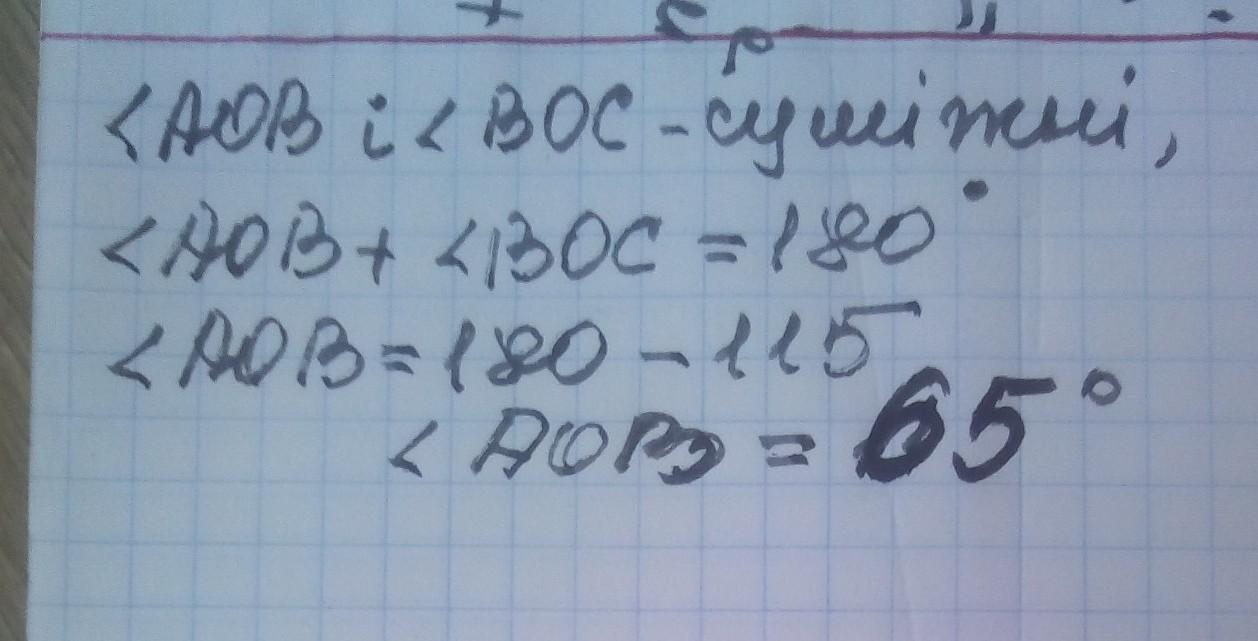 <AOB і < BOC - суміжні,
<AOB + <BOC = 180°
<AOB = 180 - 115
< AOB = 65°